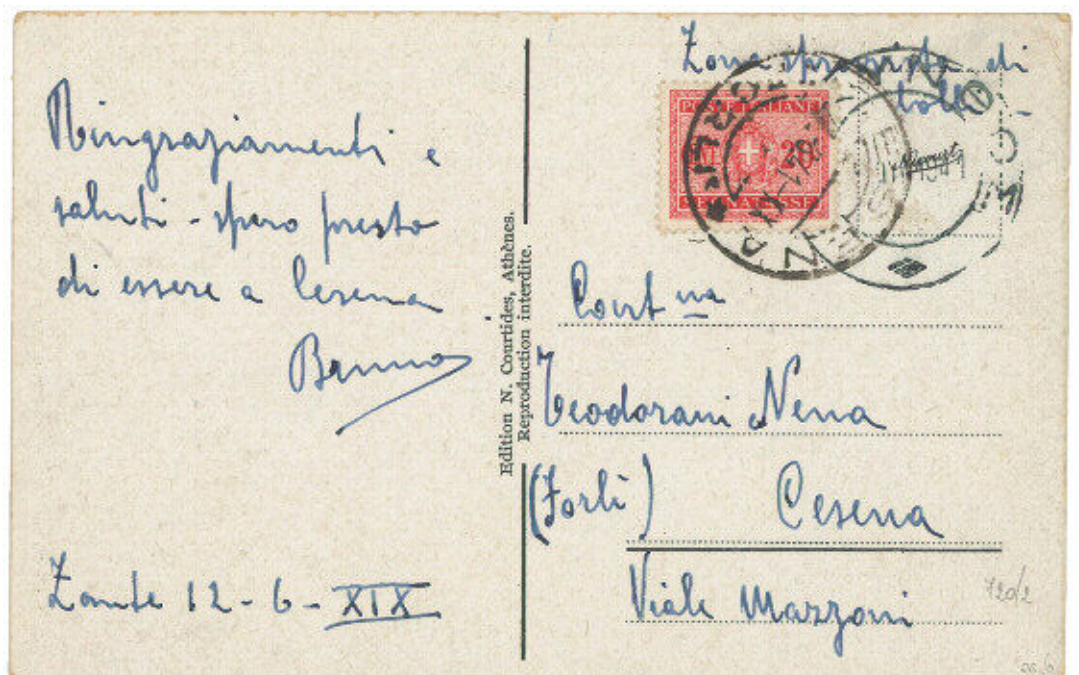 Ringraziamenti e
saluti - spero presto
di essere a Cesena
Bruno
Zante 12-6-XIX
Edition N. Courtides, Athènes.
Reproduction interdite.
Zona sprovvista di
bolli
POSTE ITALIANE
20
SEGNATASSE
Teodorani Nena
(Forlì) Cesena
Viale Mazzoni